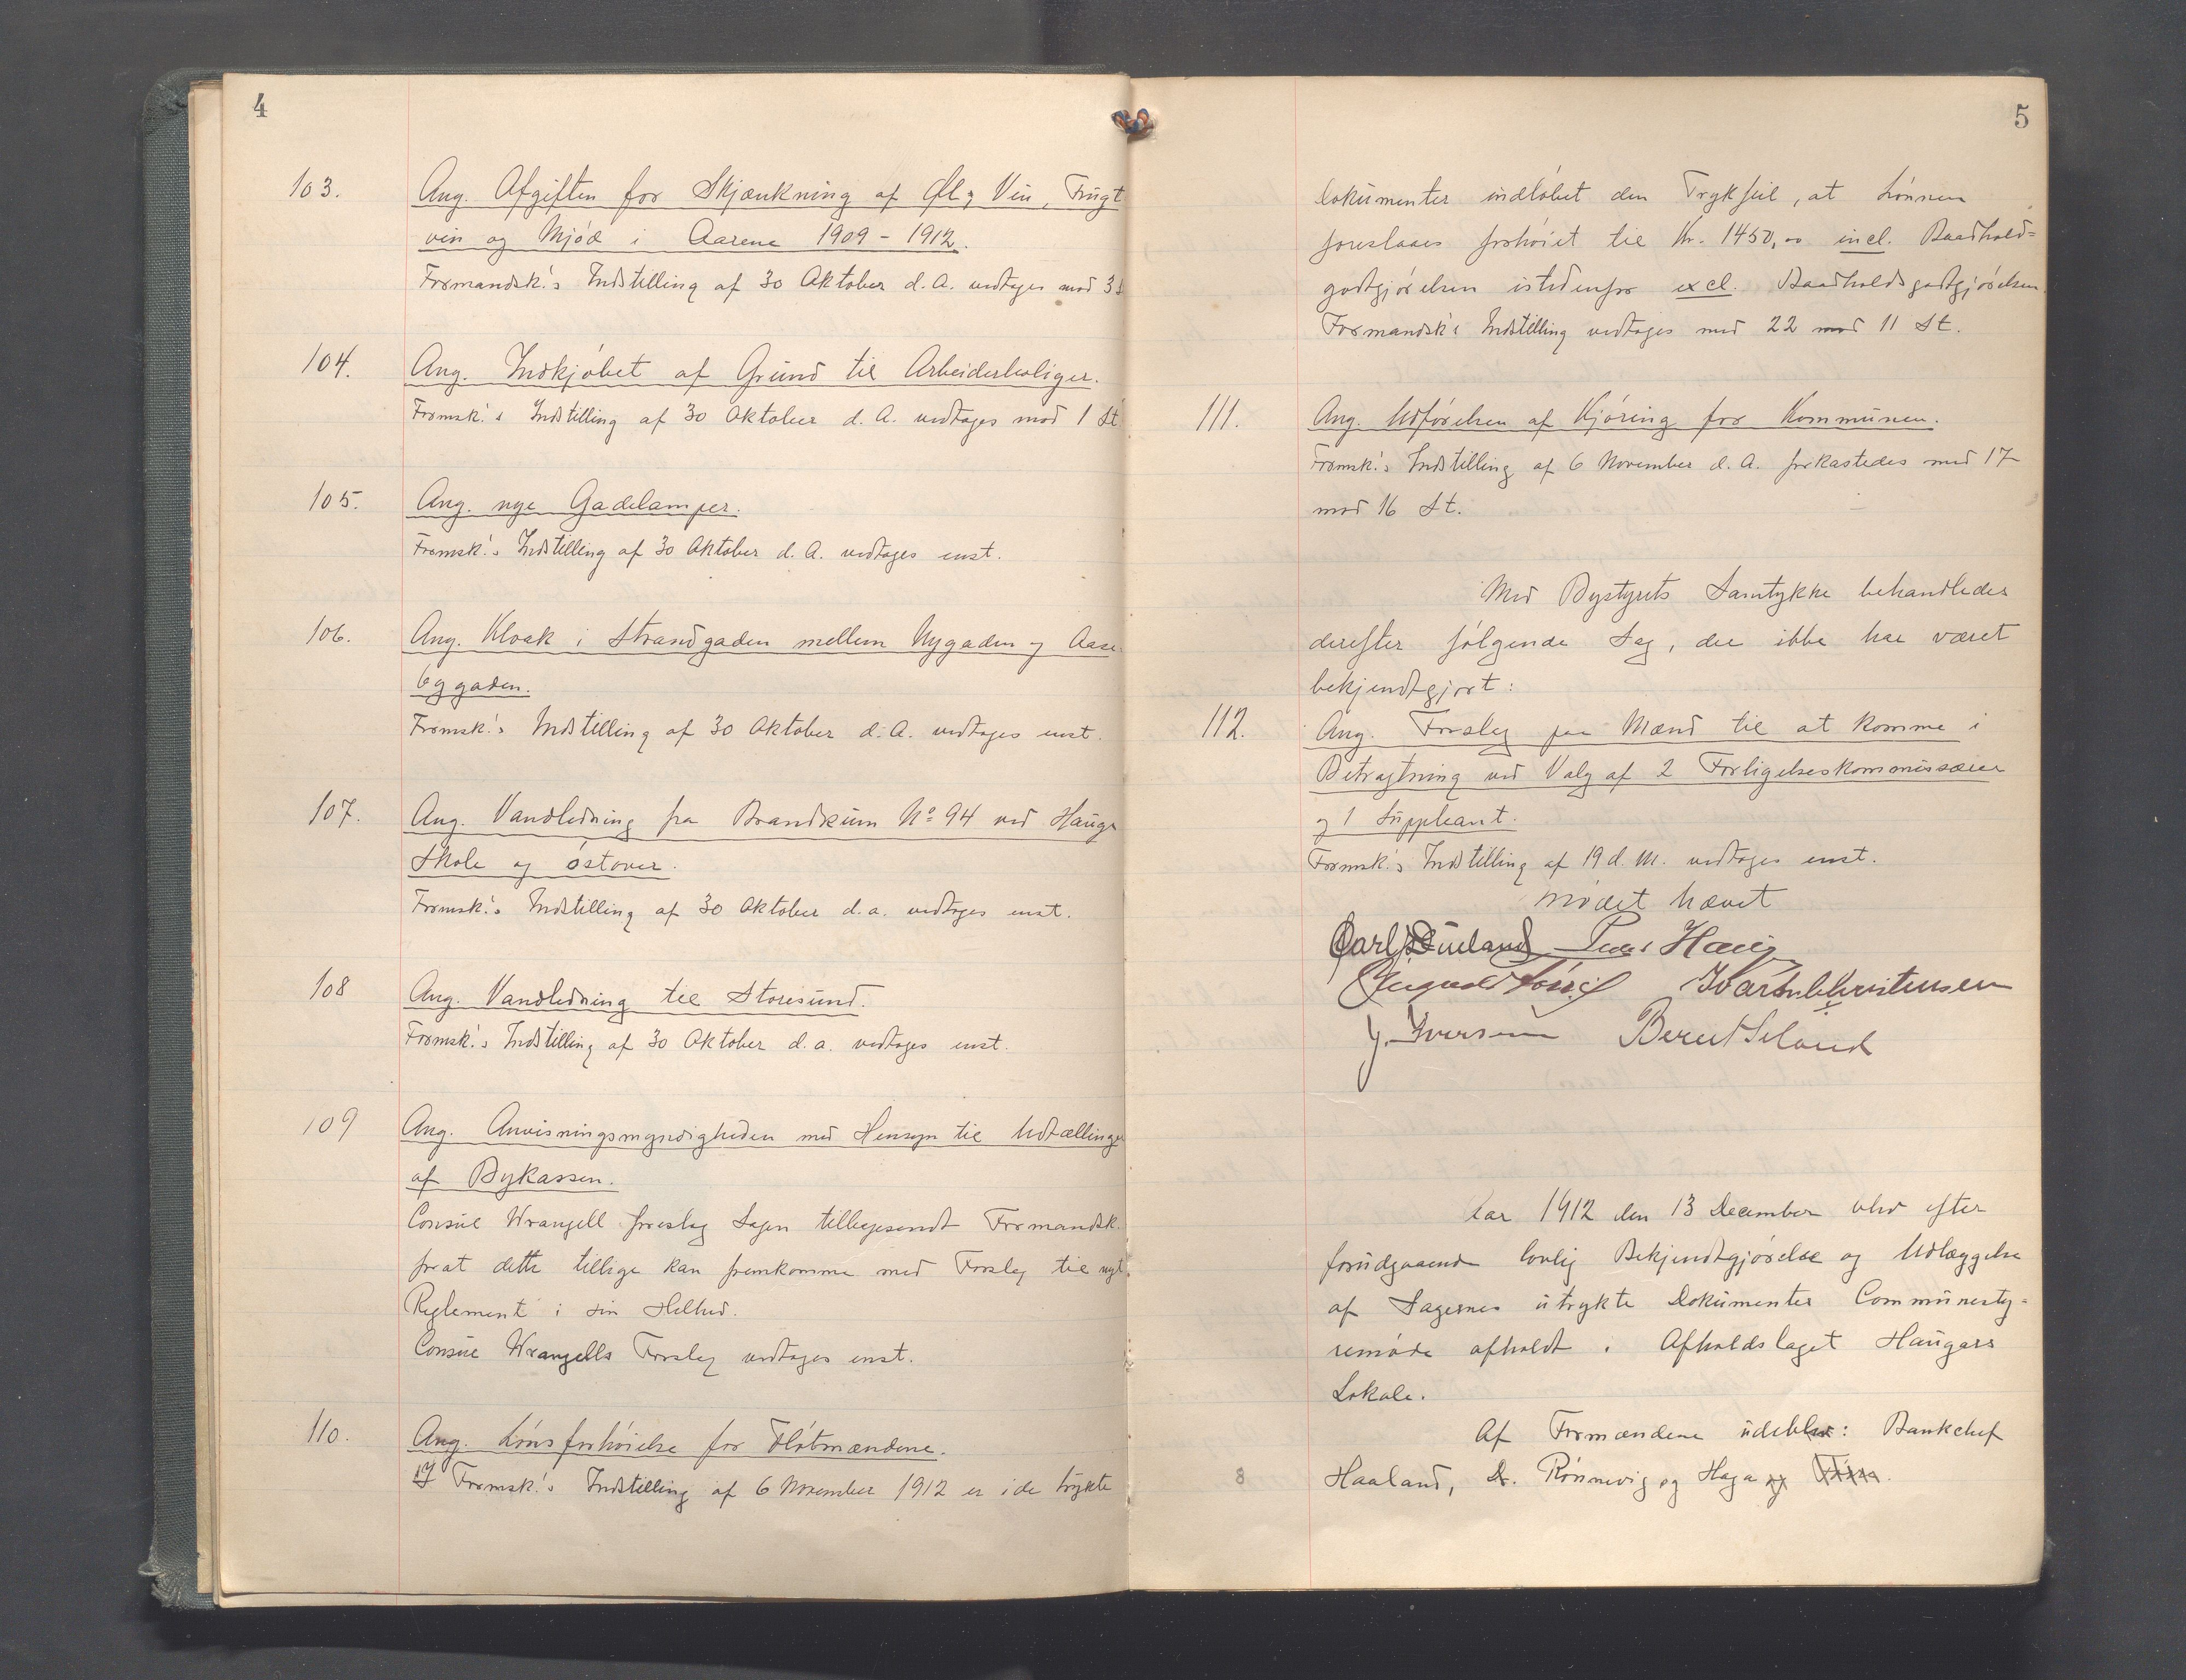 4
103. Ang. Afgiften for Skjænkning af Øl, Vin, Frugt
vin og Mjød i Aarene 1909 - 1912.
Formandsk's Indstilling af 30 Oktober d. A. vedtages mod 3 S
104. Ang. Indkjøbet af Grund til Arbeiderboliger.
Formsk's Indstilling af 30 Oktober d. A. vedtages mod 1 St
105. Ang. nye Gadelamper.
Formsk's Indstilling af 30 Oktober d. A. vedtages enst.
106. Ang. Kloak i Strandgaden mellem Nygaden og Aase
byggaden.
Formsk's Indstilling af 30 Oktober d. A. vedtages enst.
107. Ang. Vandledning fra Brandkum No 94 ved Hauge
Skole og østover.
Formsk's Indstilling af 30 Oktober d. a. vedtages enst.
108 Ang. Vandledning til Storesund.
Formsk's Indstilling af 30 Oktober d. a. vedtages enst.
109 Ang. Anvisningsmyndigheden med Hensyn til Udtællinger
af Bykassen.
Consul Wrangell foreslog Sagen tilbagesendt Formandsk.
forat dette tillige kan fremkomme med Forslag til nyt
Reglement i sin Helhed.
Consul Wrangells Forslag vedtages enst.
110. Ang. Lønsforhøielse for Fløtmændene.
I Formsk's Indstilling af 6 November 1912 er i de trykte
5
Dokumenter indløbet den Trykfeil, at Lønnen
foreslaaes forhøiet til Kr. 1450,00 incl. Baadhold=
godtgjørelsen istedenfor excl. Baadholdsgodtgjørelsen.
Formandsk's Indstilling vedtages med 22 mod 11 St.
111. Ang. Udførelsen af Kjøring for Kommunen.
Formsk's Indstilling af 6 November d. A. forkastedes med 17
mod 16 St.
Med Bystyrets Samtykke behandledes
derefter følgende Sag, der ikke har været
bekjendtgjort:
112. Ang. Forslag paa Mænd til at komme i
Betragtning ved Valg af 2 Forligelseskommissærer
og 1 Suppleant.
Formsk's Indstilling af 19 d. M. vedtages enst.
Mødet hævet
Carl Haug
Christensen
J. Iversen Berent Seland
Aar 1912 den 13 December blev efter
forudgaaende lovlig Bekjendtgjørelse og Udlæggelse
af Sagernes utrykte Dokumenter Communesty=
remøde afholdt i Afholdslaget Haugars
Lokale.
Af Formændene udeblev: Bankchef
8 Haaland, Dr. Rønnevig og Haga og